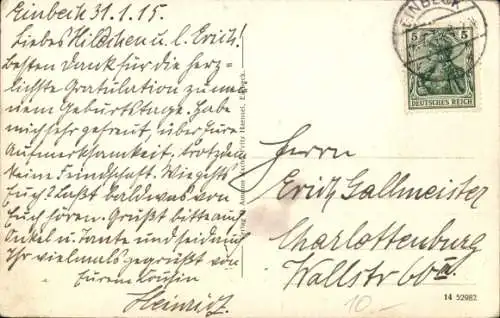 Einbeck 31.1.15.
Liebes Hildchen u. l. Erich!
Besten Dank für die herz-
lichste Gratulation zu mei-
nem Geburtstage. Habe
mich sehr gefreut, über Eure
Aufmerksamkeit, trotzdem
keine Feindschaft. Wie geht's
Euch? Laßt bald was von
Euch hören. Grüßt bitte auch
Onkel u. Tante und seid auch
Ihr vielmals gegrüßt von
Eurem Kousin
Heinrich.
EINBECK
5 5
DEUTSCHES REICH
Fritz Haensel, Einbeck.
Herrn
Erich Gallmeister
Charlottenburg
Wallstr. 60 II.
10.-
14 52982